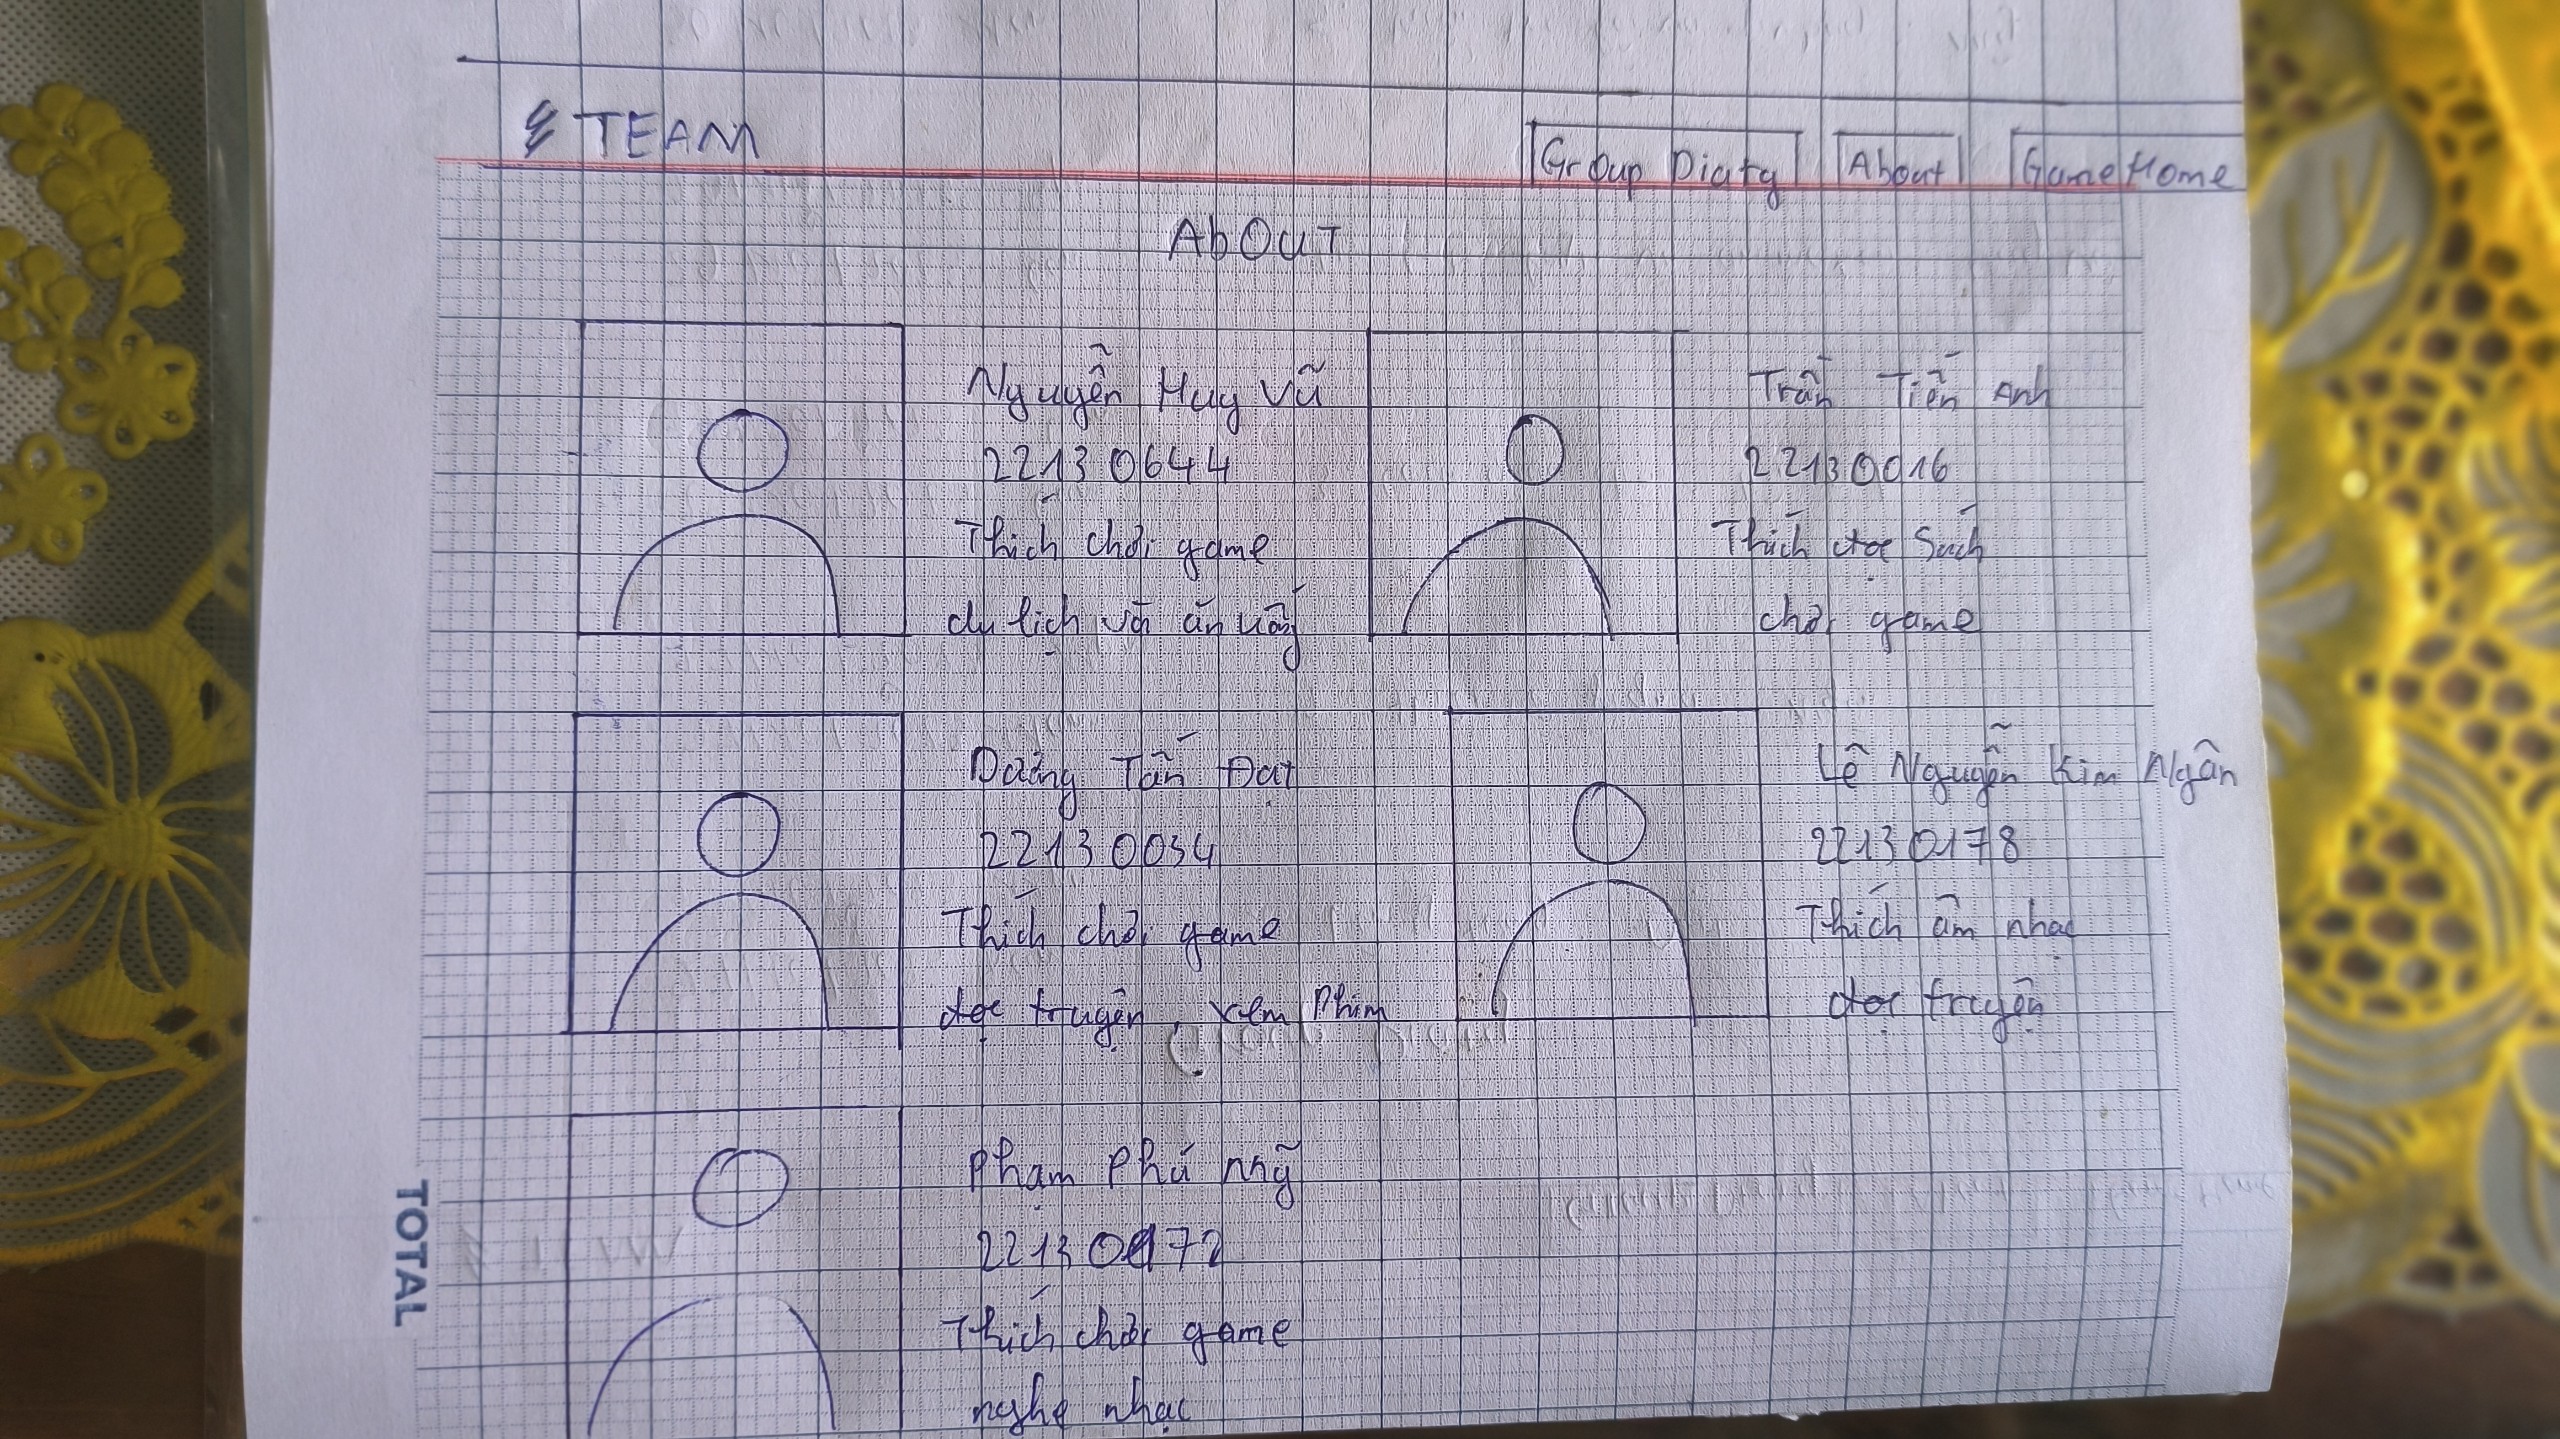 TEAM
Group Diaty
About
Game Home
AbOUT
Nguyễn Huy Vũ
22130644
Thích chơi game
du lịch và ăn uống
Trần Tiến Anh
22130016
Thích đọc Sách
chơi game
Tấn Đạt
22130034
Thích chơi game
đọc truyện, xem Phim
Lê Nguyễn Kim Ngân
22130178
Thích âm nhạc
đọc truyện
Phạm Phú
Thích chơi game
nghe nhạc
TOTAL